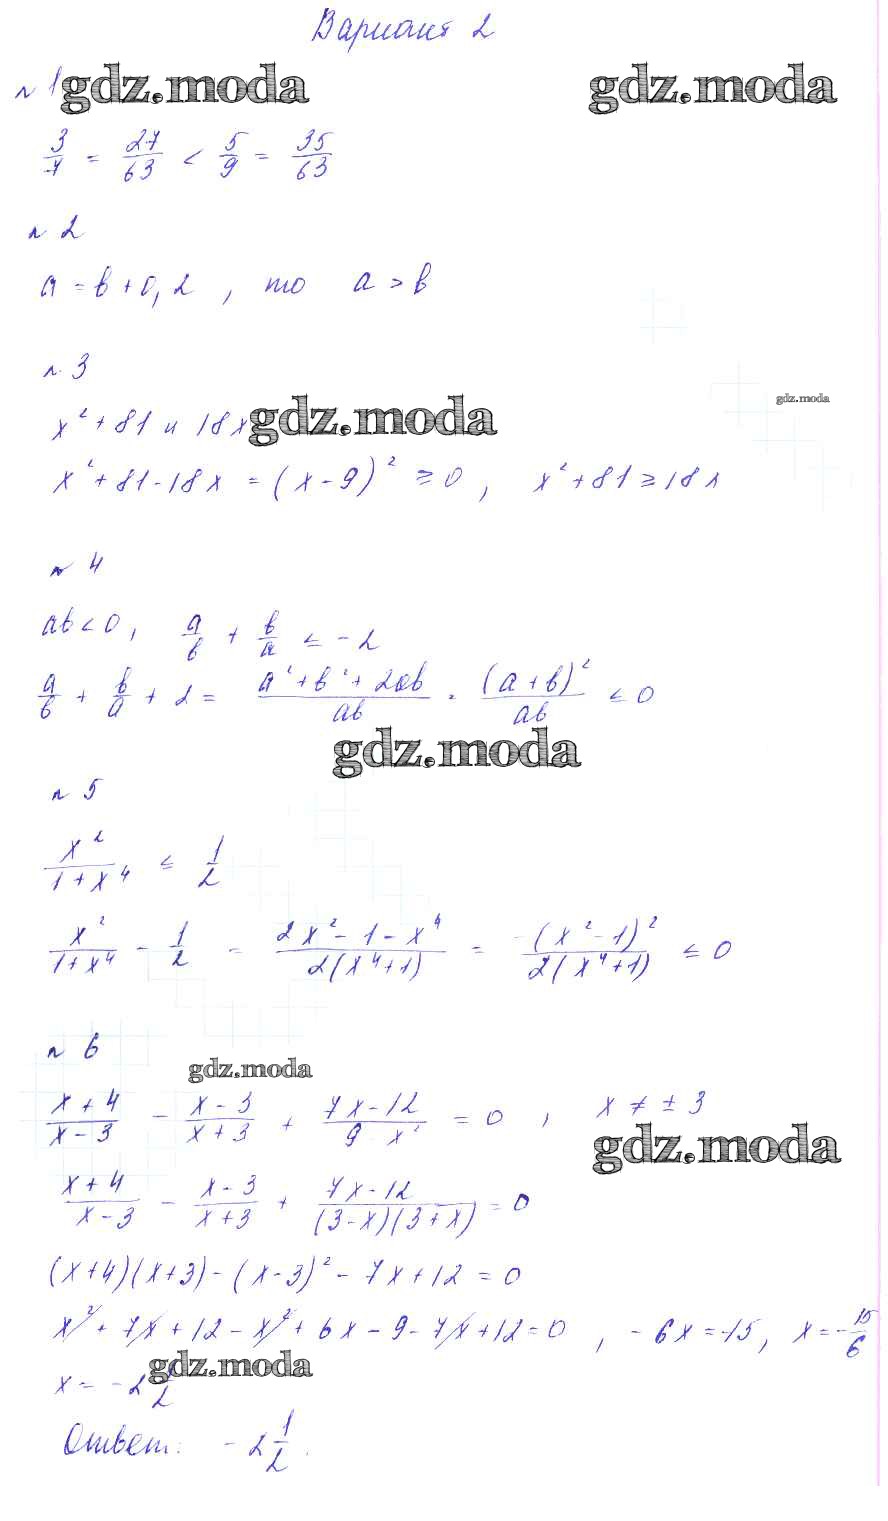 Вариант 2
№ 1 gdz.moda gdz.moda
3/7 = 27/63 < 5/9 = 35/63
№ 2
a = b + 0,2 , то a > b
№ 3
gdz.moda
x² + 81 и 18x gdz.moda
x² + 81 - 18x = (x - 9)² ≥ 0 , x² + 81 ≥ 18x
№ 4
ab < 0 , a/b + b/a ≤ -2
a/b + b/a + 2 = (a² + b² + 2ab)/ab = (a + b)²/ab ≤ 0
gdz.moda
№ 5
x²/(1 + x⁴) ≤ 1/2
x²/(1 + x⁴) - 1/2 = (2x² - 1 - x⁴)/(2(x⁴ + 1)) = -(x² - 1)²/(2(x⁴ + 1)) ≤ 0
№ 6
gdz.moda
(x + 4)/(x - 3) - (x - 3)/(x + 3) + (7x - 12)/(9 - x²) = 0 , x ≠ ± 3
gdz.moda
(x + 4)/(x - 3) - (x - 3)/(x + 3) + (7x - 12)/((3 - x)(3 + x)) = 0
(x + 4)(x + 3) - (x - 3)² - 7x + 12 = 0
x² + 7x + 12 - x² + 6x - 9 - 7x + 12 = 0 , - 6x = -15 , x = -15/6
gdz.moda
x = -2 1/2
Ответ: -2 1/2 .